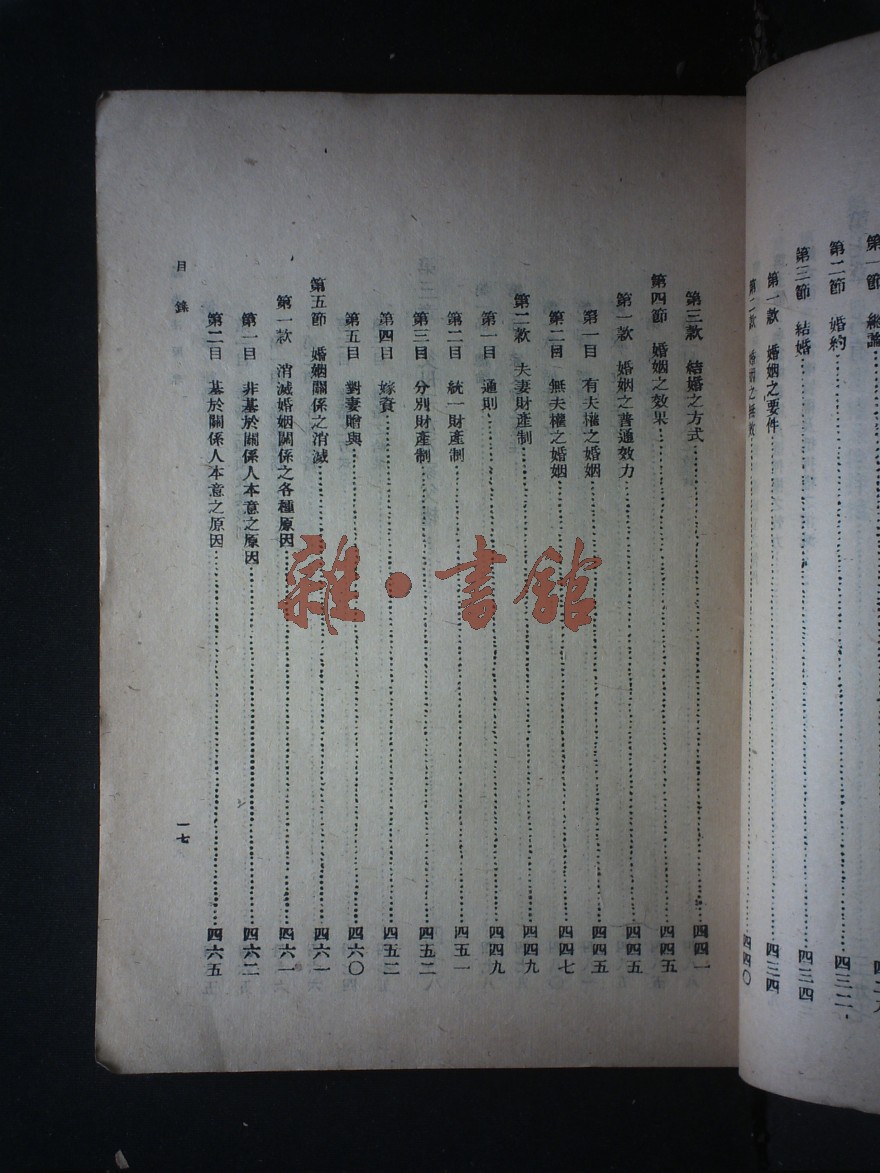 第一節　總論
第二節　婚約……四三二
第三節　結婚……四三四
第一款　婚姻之要件……四三四
第二款　婚姻之無效……四四〇
第三款　結婚之方式……四四一
第四節　婚姻之效果……四四五
第一款　婚姻之普通效力……四四五
第一目　有夫權之婚姻……四四五
第二目　無夫權之婚姻……四四七
第二款　夫妻財產制……四四九
第一目　通則……四四九
第二目　統一財產制……四五一
第三目　分別財產制……四五二
第四目　嫁資……四五二
第五目　對妻贈與……四六〇
第五節　婚姻關係之消滅……四六一
第一款　消滅婚姻關係之各種原因……四六一
第一目　非基於關係人本意之原因……四六二
第二目　基於關係人本意之原因……四六五
目錄
一七
雜·書館